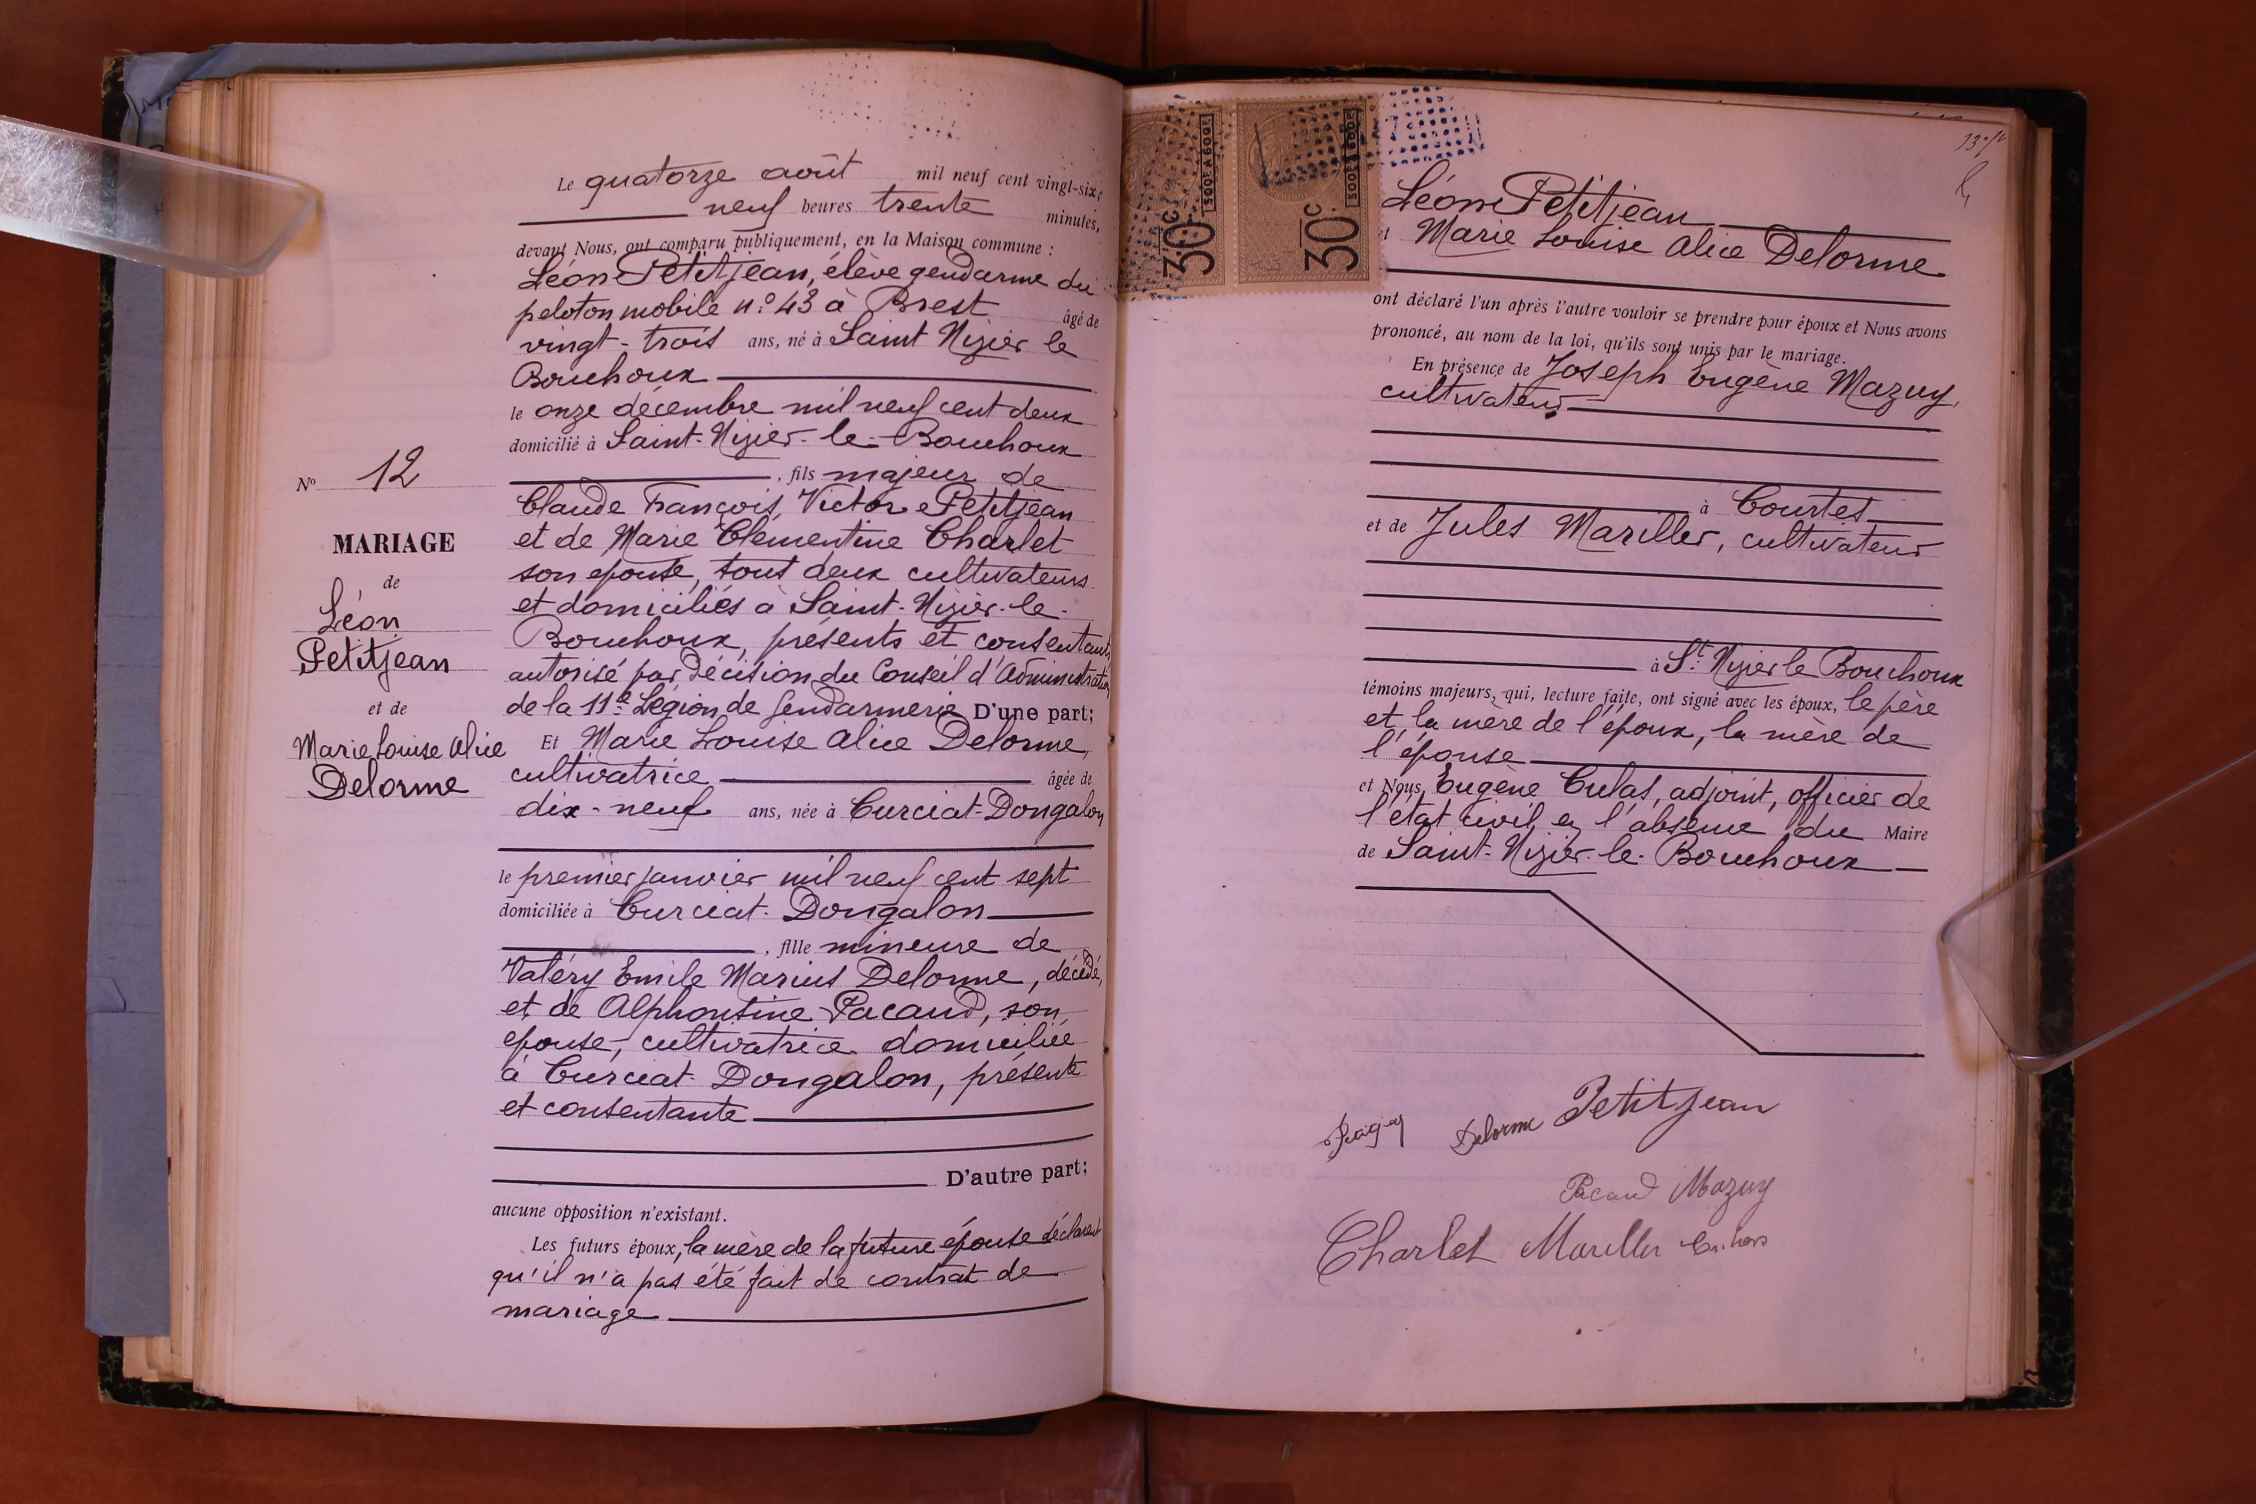 Nº 12
MARIAGE
de
Léon
Petitjean
et de
Marie Louise Alice
Delorme
Le quatorze août mil neuf cent vingt-six
neuf heures trente minutes,
devant Nous, ont comparu publiquement, en la Maison commune :
Léon Petitjean, élève gendarme du
peloton mobile n° 43 à Brest âgé de
vingt-trois ans, né à Saint Nizier le
Bouchoux
le onze décembre mil neuf cent deux
domicilié à Saint-Nizier-le-Bouchoux
, fils majeur de
Claude François Victor Petitjean
et de Marie Clémentine Charlet
son epouse, tout deux cultivateurs
et domiciliés à Saint-Nizier-le-
Bouchoux, présents et consentants
autorisé par décision du Conseil d'Administration
de la 11e Légion de Gendarmerie D'une part;
Et Marie Louise Alice Delorme,
cultivatrice âgée de
dix-neuf ans, née à Curciat-Dongalon
le premier janvier mil neuf cent sept
domiciliée à Curciat-Dongalon
, fille mineure de
Valéry Emile Marius Delorme, décédé,
et de Alphonsine Pacaud, son
epouse, cultivatrice domiciliée
à Curciat-Dongalon, présente
et consentante
D'autre part;
aucune opposition n'existant.
Les futurs époux, la mère de la future épouse déclarent
qu'il n'a pas été fait de contrat de
mariage
30c
500F A 600F
30c
500F A 600F
Léon Petitjean
et Marie Louise Alice Delorme
ont déclaré l'un après l'autre vouloir se prendre pour époux et Nous avons
prononcé, au nom de la loi, qu'ils sont unis par le mariage.
En présence de Joseph Eugène Mazuy,
cultivateur
à Courtes
et de Jules Mariller, cultivateur
à St Nizier le Bouchoux
témoins majeurs, qui, lecture faite, ont signé avec les époux, le père
et la mère de l'époux, la mère de
l'épouse
et Nous, Eugène Culas, adjoint, officier de
l'état civil en l'absence du Maire
de Saint-Nizier-le-Bouchoux
Delorme Petitjean
Pacaud Mazuy
Charlet Mariller